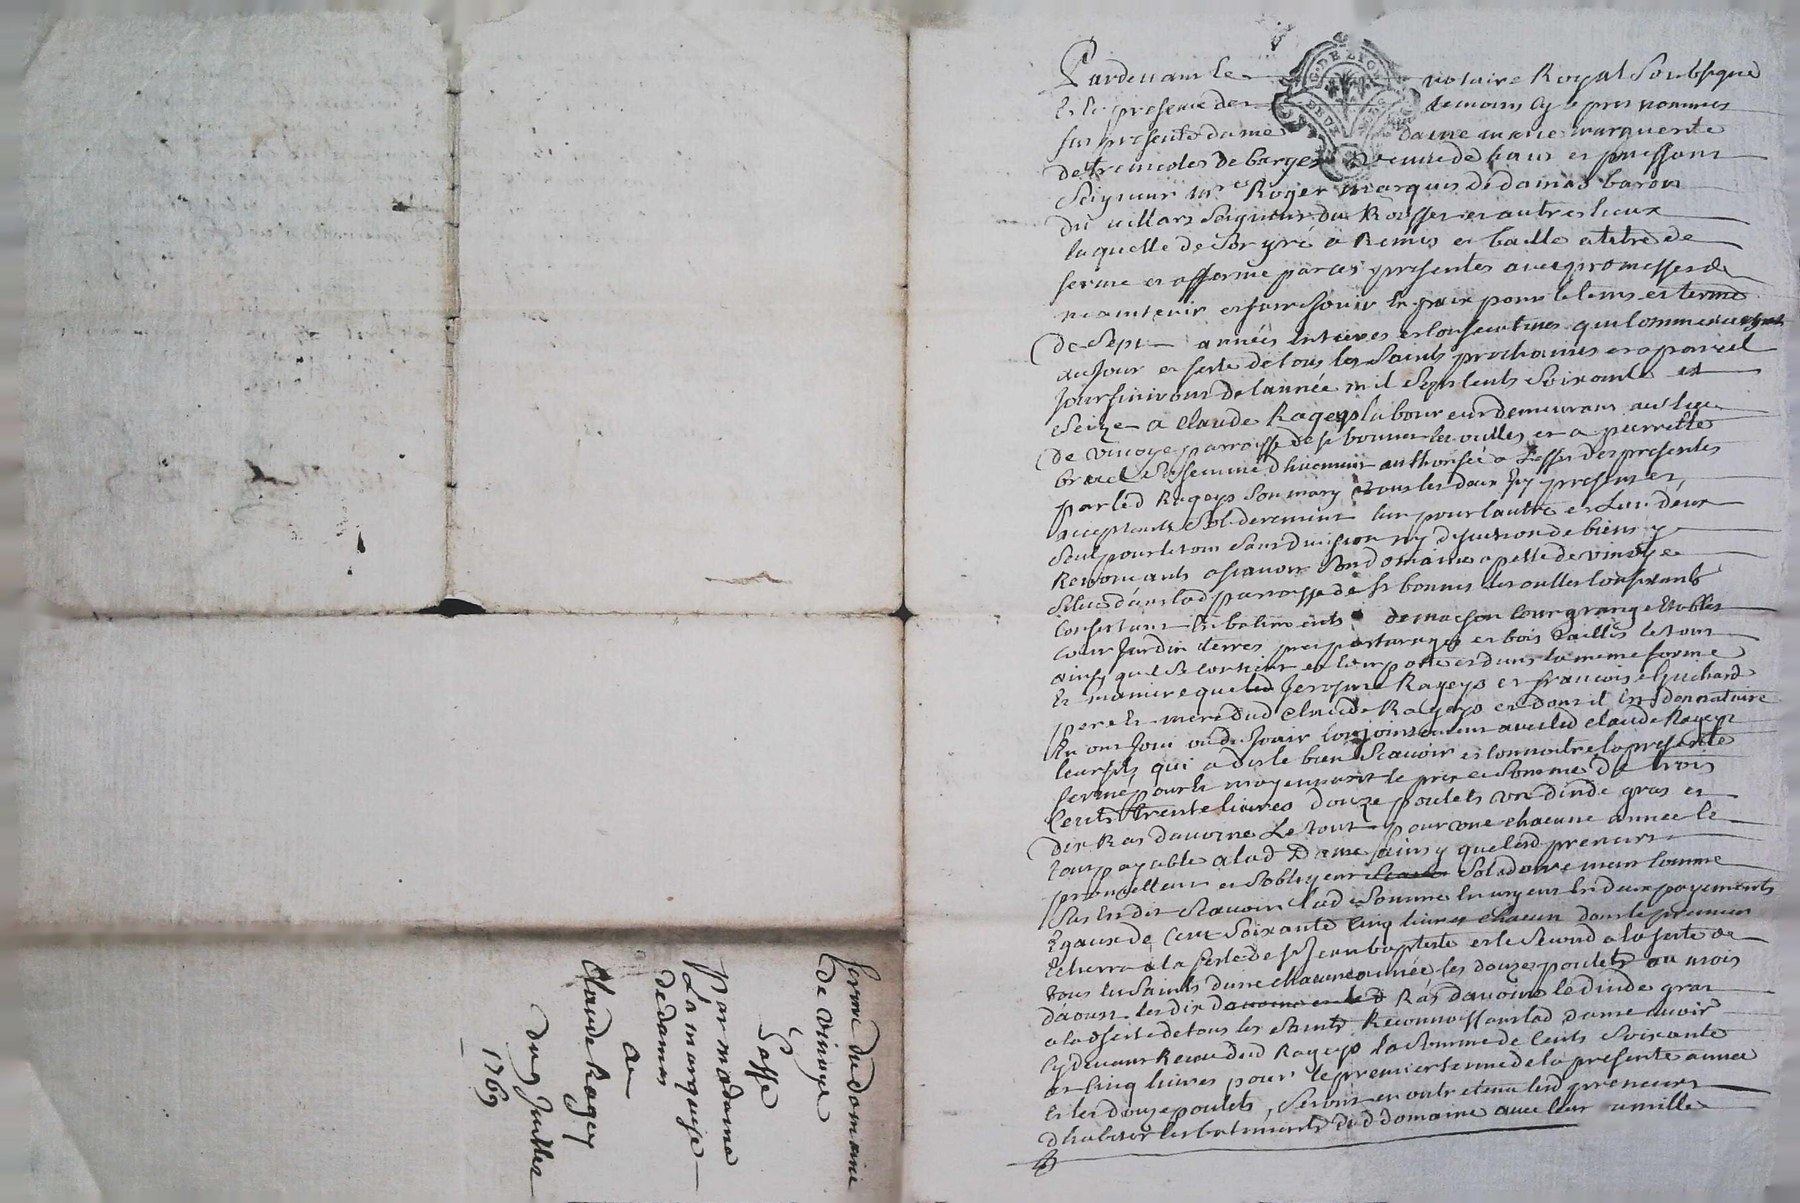 Pardevant le notaire Royal Soubsigné
Et en presence des temoins cy apres nommés
fut presente dame dame marie marguerite
de de barges veuve de haut et puissant
Seigneur mre Roger marquis de damas baron
du villars Seigneur du Rousset et autres lieux
laquelle de Son gré a Remis et baille a titre de
ferme et afferme par ces presentes avec promesse de
maintenir et faire Jouir En paix pour le tems et terme
de Sept années Entieres et Consecutives qui Commenceront
au Jour et feste de tous les Saints prochaines et a pareil
Jour finiront de lannée mil Sept Cents Soixante et
Seize a Claude Rageys laboureur demeurant au lieu
de vinoye parroisse de st bonnet les oulles et a pierrette
Sa femme de luy authorisée a Leffet des presentes
par led Rageys Son mary tous les deux Icy presents et
acceptants Solidairement lun pour lautre et Lun deux
Seul pour le tout Sans division ny discution de biens y
Renonceants a Scavoir Son domaine apellé de vinoye
Situé dans lad parroisse de st bonnet les oulles Consistant
Consistant En batiments de maison Cour grange Etables
Cour Jardin terres prés pasturages et bois taillis le tout
ainsy quil Se Contient et Comporte et dans la meme forme
Et maniere que led Jerosme Rageys et francoise Guichard
pere Et mere dud Claude Rageys et dont il Est donnataire
En ont Joui ou du Jouir Conjointement avec led Claude Rageys
leur fils qui a dit le bien Scavoir et Connoitre la presente
ferme pour Et moyennant le prix et Somme de trois
Cents trente livres douze poulets un dinde gras et
dix Ras davoine Le tout pour une chacune année le
tout payable a lad Dame ainsy que lesd preneurs
promettent et Sobligent Solidairement Comme
Sus Est dit Scavoir lad Somme En argent En deux payements
Egaux de Cent Soixante Cinq livres chacun dont le premier
Echerra a la feste de st Jean baptiste et le Second a la feste de
tous les Saints dune chacune année les douze poulets au mois
daoust les dix davoine et led Ras davoine le dinde gras
a lad feste de tous les Saints Reconnoissant lad dame avoir
Cy devant Receu dud Rageys la Somme de Cents Soixante
et Cinq livres pour le premier terme de la presente année
Et les douze poulets, Seront en outre tenu lesd preneurs
dhabiter les batiments dud domaine avec leur famille
ferme du domaine
de vinoye
Passé
Par madame
La marquise
de damas
au
Claude Ragey
Du 9 Juillet
1769